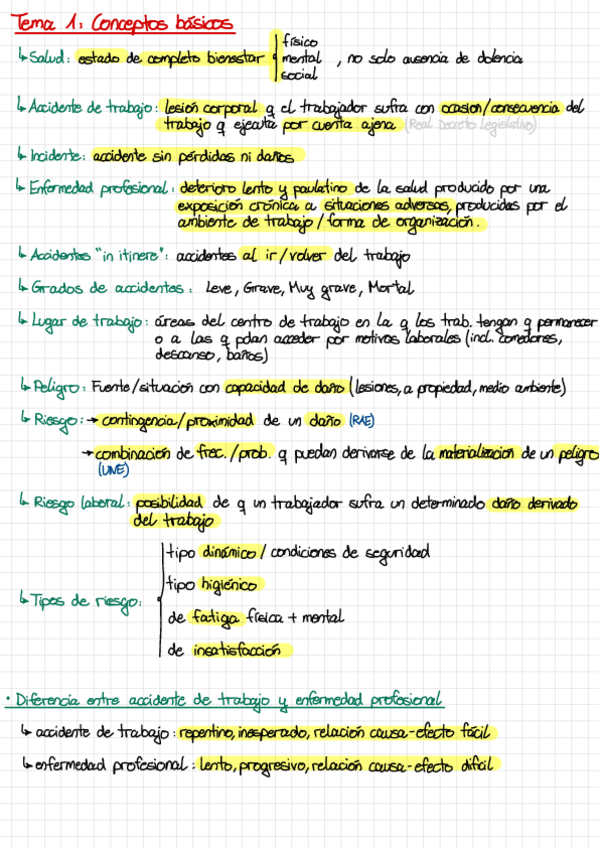 Tema 1: Conceptos básicos
↳ Salud: estado de completo bienestar | físico
mental , no solo ausencia de dolencia
social
↳ Accidente de trabajo: lesión corporal q el trabajador sufra con ocasión/consecuencia del
trabajo q ejecuta por cuenta ajena (Real Decreto Legislativo)
↳ Incidente: accidente sin pérdidas ni daños
↳ Enfermedad profesional: deterioro lento y paulatino de la salud producido por una
exposición crónica a situaciones adversas, producidas por el
ambiente de trabajo / forma de organización.
↳ Accidentes "in itinere": accidentes al ir / volver del trabajo
↳ Grados de accidentes: Leve, Grave, Muy grave, Mortal
↳ Lugar de trabajo: áreas del centro de trabajo en la q los trab. tengan q permanecer
o a las q pdan acceder por motivos laborales (incl. comedores,
descanso, baños)
↳ Peligro: Fuente/situación con capacidad de daño (lesiones, a propiedad, medio ambiente)
↳ Riesgo: → contingencia/proximidad de un daño (RAE)
→ combinación de frec./prob. q puedan derivarse de la materialización de un peligro
(UNE)
↳ Riesgo laboral: posibilidad de q un trabajador sufra un determinado daño derivado
del trabajo
tipo dinámico / condiciones de seguridad
tipo higiénico
↳ Tipos de riesgo:
de fatiga física + mental
de insatisfacción
· Diferencia entre accidente de trabajo y enfermedad profesional
↳ accidente de trabajo: repentino, inesperado, relación causa-efecto fácil
↳ enfermedad profesional: lento, progresivo, relación causa-efecto difícil